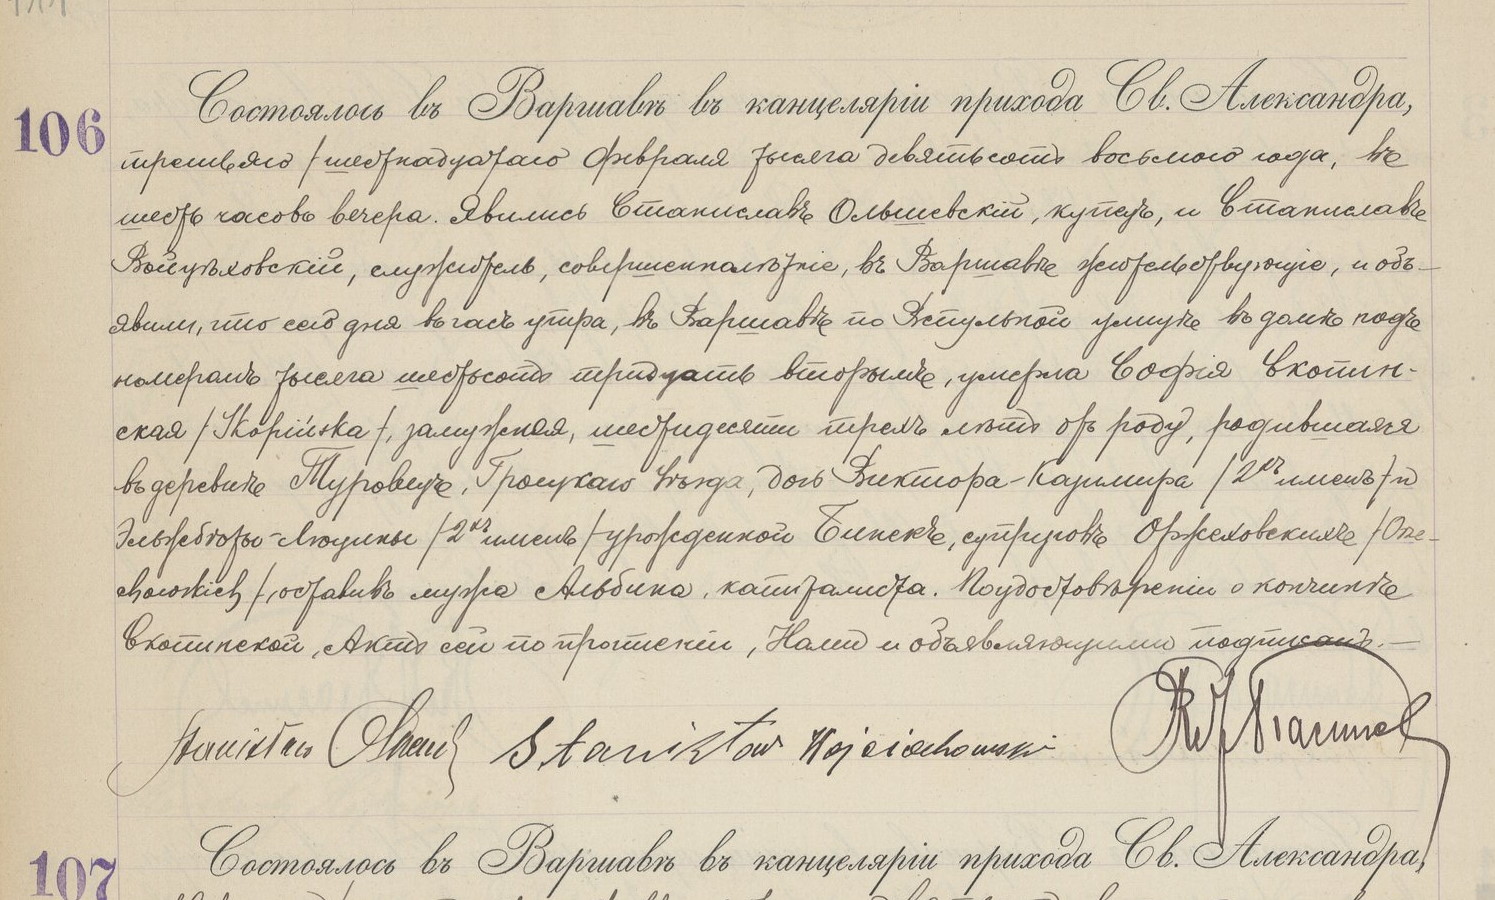 106
Состоялось въ Варшавѣ въ канцеляріи прихода Св. Александра,
третьяго / шестнадцатаго Февраля тысяча девятьсотъ восьмого года, въ
шесть часовъ вечера. Явились Станиславъ Ольшевскій, купецъ, и Станиславъ
Войцѣховскій, служитель, совершеннолѣтніе, въ Варшавѣ жительствующіе, и объ-
явили, что сего дня въ часъ утра, въ Варшавѣ по Вспульной улицѣ въ домѣ подъ
номеромъ тысяча шестьсотъ тридцать вторымъ, умерла Софія Скопин-
ская / Skopińska /, замужняя, шестидесяти трехъ лѣтъ отъ роду, родившаяся
въ деревнѣ Туровецѣ, Гроецкаго уѣзда, дочь Виктора-Казимира / 2хъ именъ / и
Эльжбеты-Люцины / 2хъ именъ / урожденной Бинекъ, супруговъ Оржеховскихъ / Orze-
chowskich /, оставивъ мужа Альбина, капиталиста. По удостовѣреніи о кончинѣ
Скопинской, Актъ сей по прочтеніи, Нами и объявляющими подписанъ. —
Stanisław Stanisław Wojciechowski
107
Состоялось въ Варшавѣ въ канцеляріи прихода Св. Александра,